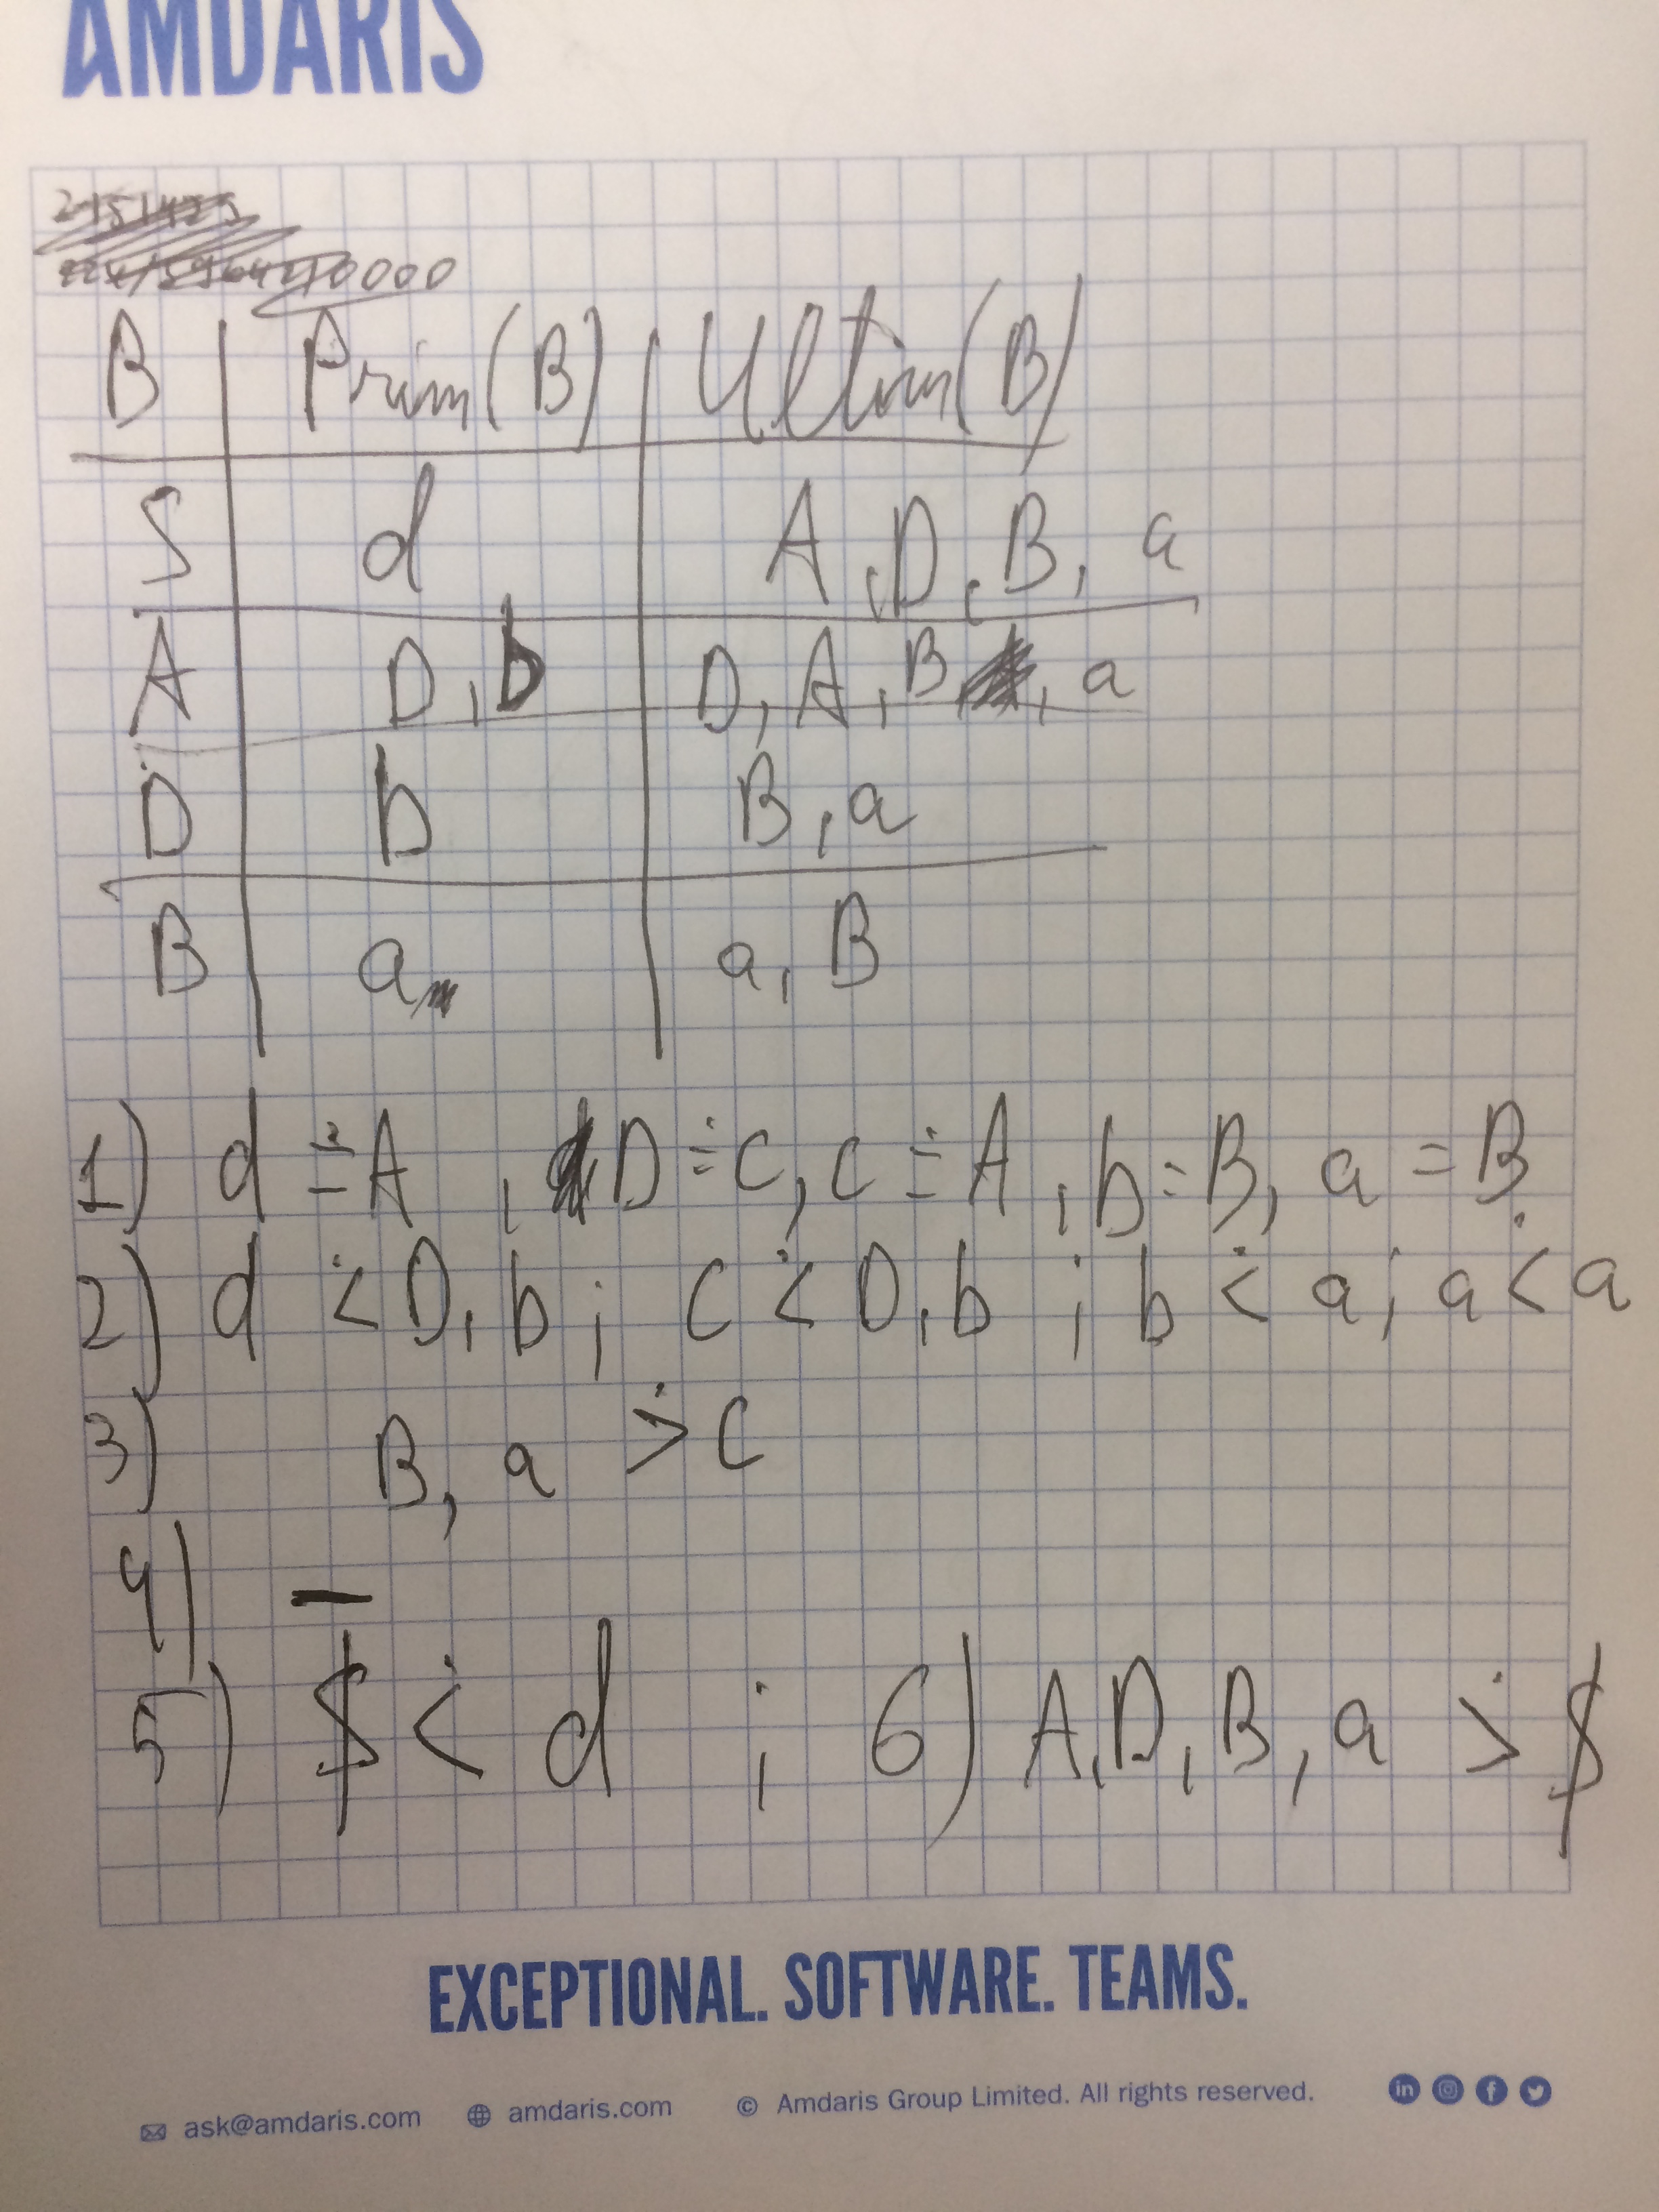 AMDARIS
B Prim(B) Ultim(B)
S d A, D, B, a
A D, b D, A, B, a
D b B, a
B a a, B
1) d ≐ A, D ≐ C, C ≐ A, b = B, a = B
2) d ⋖ D, b; C ⋖ D, b; b ⋖ a; a ⋖ a
3) B, a ⋗ C
4) –
5) $ ⋖ d; 6) A, D, B, a ⋗ $
EXCEPTIONAL. SOFTWARE. TEAMS.
ask@amdaris.com amdaris.com © Amdaris Group Limited. All rights reserved.